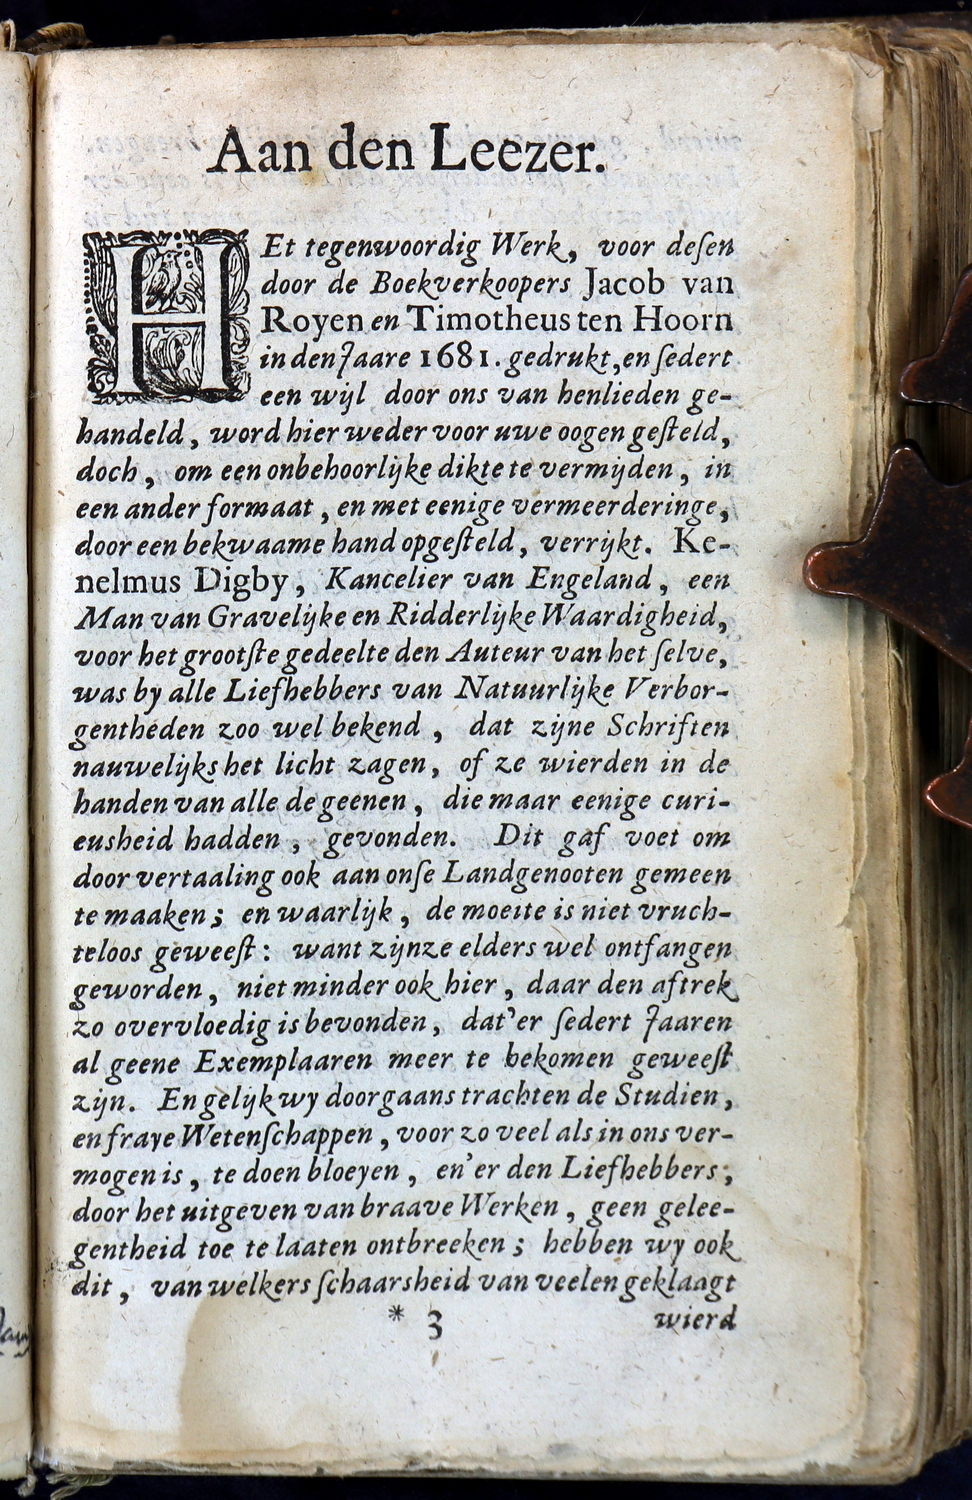 Aan den Leezer.
HEt tegenwoordig Werk, voor deſen
door de Boekverkoopers Jacob van
Royen en Timotheus ten Hoorn
in den Jaare 1681. gedrukt, en ſedert
een wijl door ons van henlieden ge-
handeld, word hier weder voor uwe oogen geſteld,
doch, om een onbehoorlijke dikte te vermijden, in
een ander formaat, en met eenige vermeerderinge,
door een bekwaame hand opgeſteld, verrijkt. Ke-
nelmus Digby, Kancelier van Engeland, een
Man van Gravelijke en Ridderlijke Waardigheid,
voor het grootſte gedeelte den Auteur van het ſelve,
was by alle Liefhebbers van Natuurlijke Verbor-
gentheden zoo wel bekend, dat zijne Schriften
nauwelijks het licht zagen, of ze wierden in de
handen van alle de geenen, die maar eenige curi-
eusheid hadden, gevonden. Dit gaf voet om
door vertaaling ook aan onſe Landgenooten gemeen
te maaken; en waarlijk, de moeite is niet vruch-
teloos geweeſt: want zijnze elders wel ontfangen
geworden, niet minder ook hier, daar den aftrek
zo overvloedig is bevonden, dat'er ſedert Jaaren
al geene Exemplaaren meer te bekomen geweeſt
zijn. En gelijk wy doorgaans trachten de Studien,
en fraye Wetenſchappen, voor zo veel als in ons ver-
mogen is, te doen bloeyen, en'er den Liefhebbers,
door het uitgeven van braave Werken, geen gelee-
gentheid toe te laaten ontbreeken; hebben wy ook
dit, van welkers ſchaarsheid van veelen geklaagt
* 3 wierd